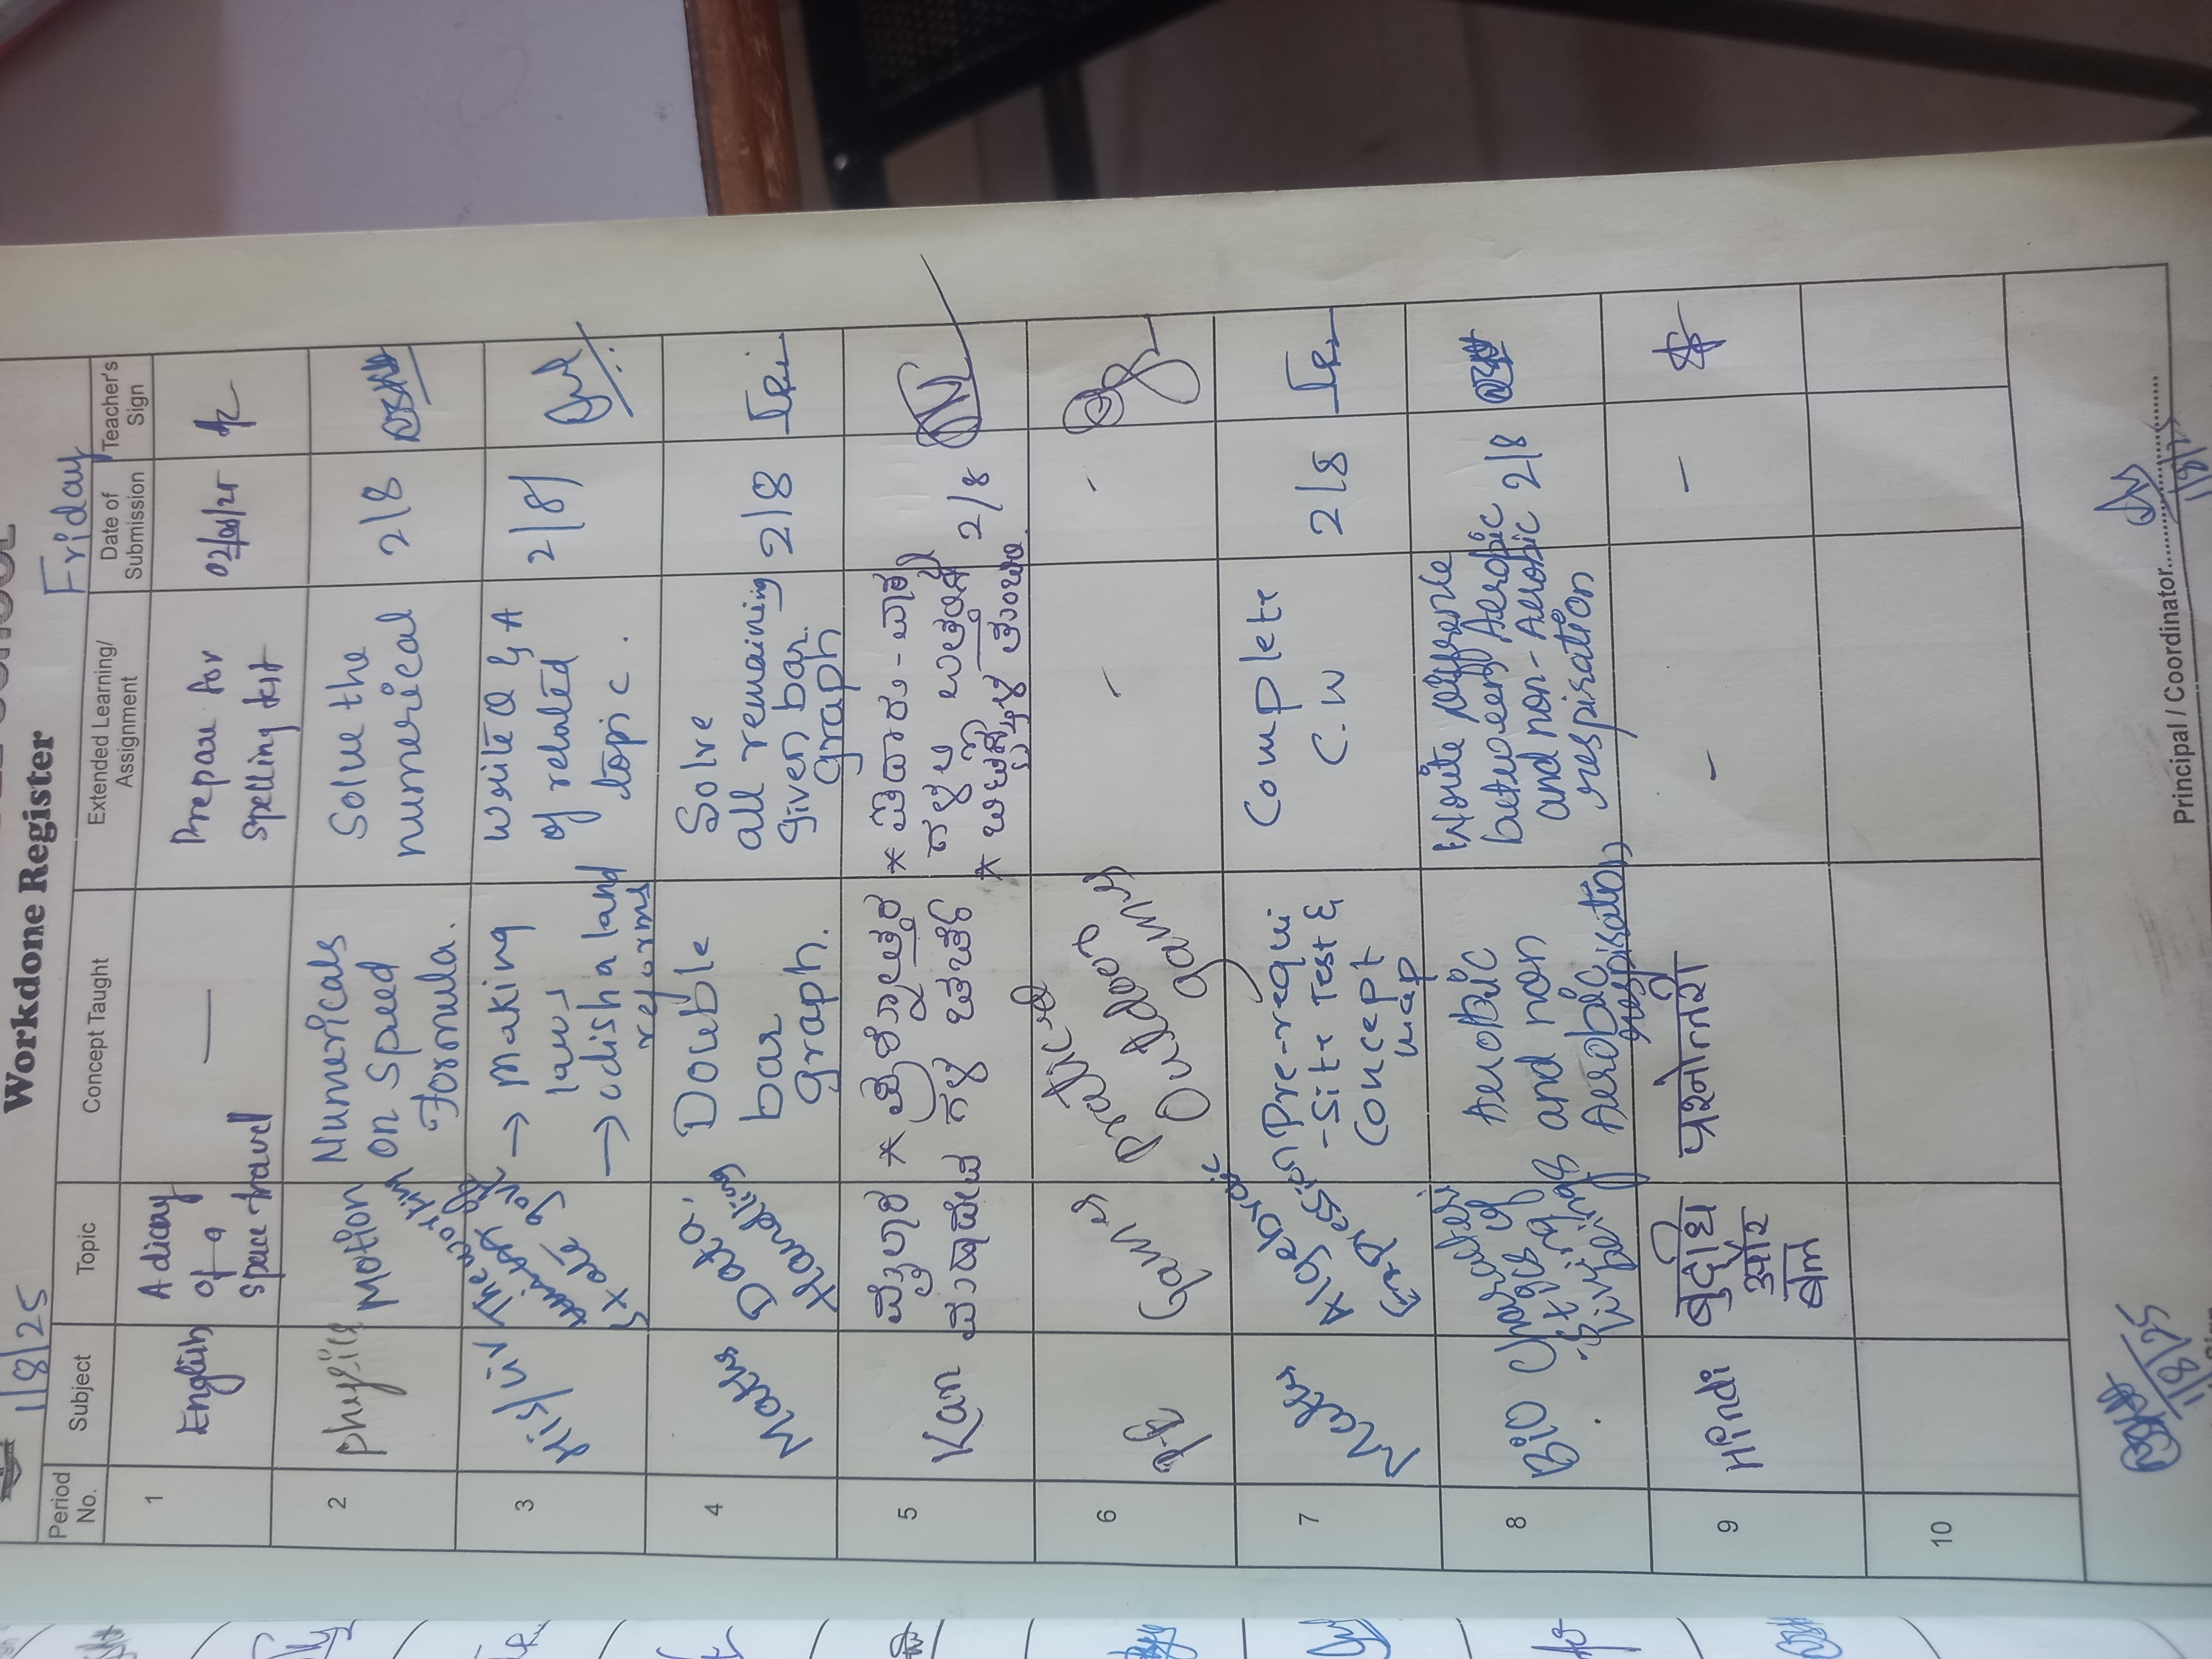 Workdone Register
1/8/25
Friday
Period No.
Subject
Topic
Concept Taught
Extended Learning/ Assignment
Date of Submission
Teacher's Sign
1
English
A diary
of a
space travel
—
Prepare for
spelling test
02/08/25
2
physics
Motion
Numericals
on speed
Formula.
Solve the
numerical
2/8
3
His/civ
The working
of the
State gov
→ Making
laws
→ odisha land
reforms
write Q & A
of related
topic.
2/8/
4
Maths
Data
Handling
Double
bar
graph.
Solve
all remaining
given bar
graph
2/8
5
Kan
* ಪ್ರಶ್ನೋತ್ತರ
ಗಳ ಚರ್ಚೆ
2/8
6
Games
Practice
Outdoor
games
-
-
7
Maths
Algebraic
Expression
Pre-requi
-site Test &
Concept
map
Complete
C.W
2/8
8
Bio
Characteristics of
living beings
Aerobic
and non
Aerobic
respiration
Write difference
between Aerobic
and non-Aerobic
respiration
2/8
9
Hindi
बुद्धि
और
बल
प्रश्नोत्तरी
-
-
10
1/8/25
Principal / Coordinator
1/8/25